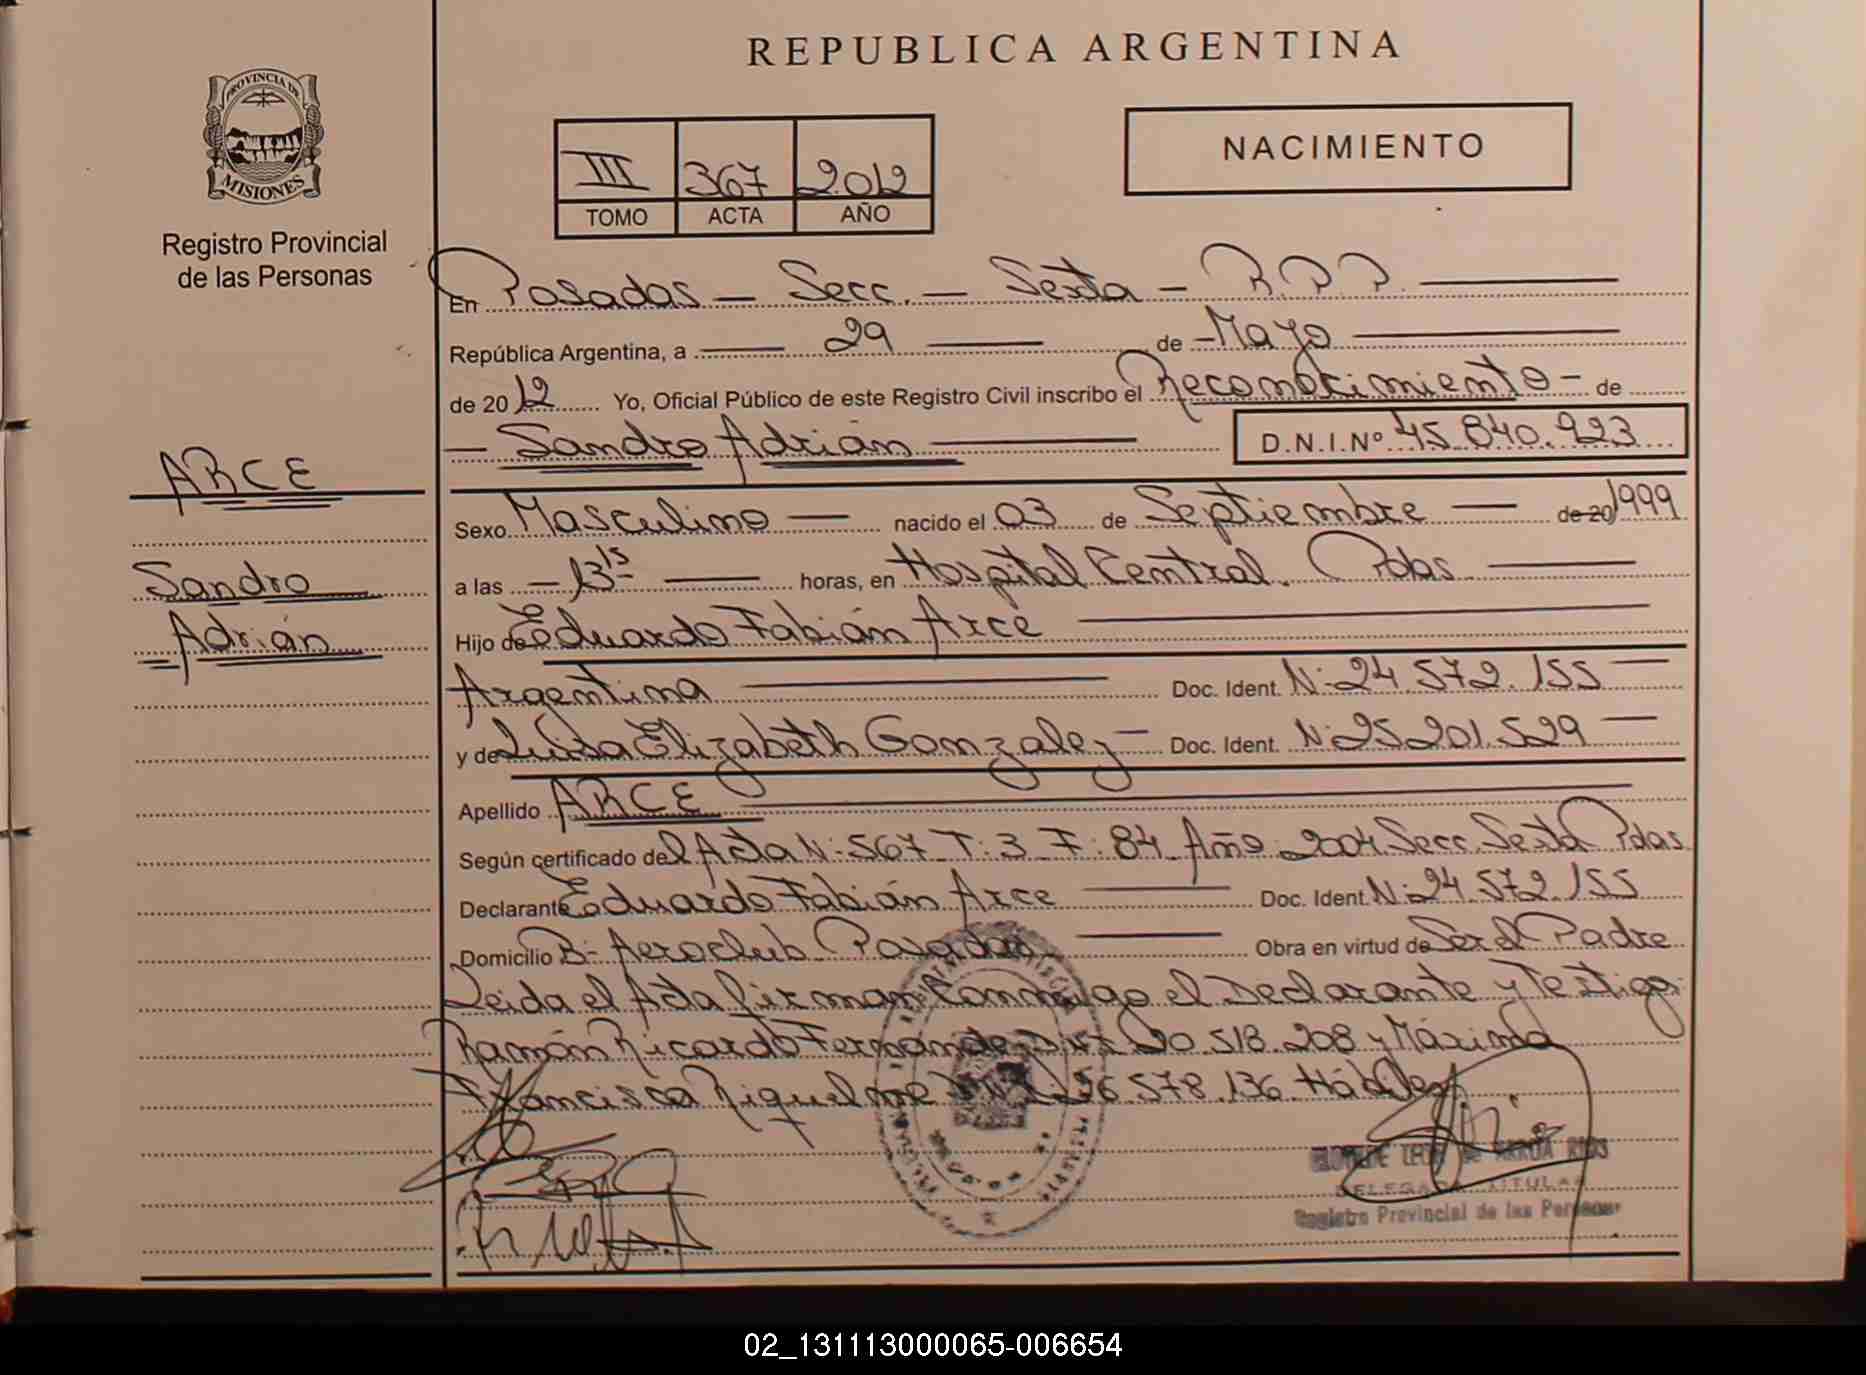 REPUBLICA ARGENTINA
PROVINCIA DE
MISIONES
Registro Provincial
de las Personas
III 367 2012
TOMO ACTA AÑO
NACIMIENTO
En Posadas — Secc. — Sexta — R.P.P.
República Argentina, a — 29 — de — Mayo
de 2012 Yo, Oficial Público de este Registro Civil inscribo el Reconocimiento — de
— Sandro Adrián — D.N.I.Nº 45.840.923
ARCE
Sandro
Adrián
Sexo Masculino — nacido el 03 de Septiembre — de 20 1999
a las — 13 15 — horas, en Hospital Central. Pdas —
Hijo de Eduardo Fabián Arce —
Argentina — Doc. Ident. N: 24.572.155 —
y de Luisa Elizabeth Gonzalez — Doc. Ident. N: 25.201.529 —
Apellido ARCE —
Según certificado del Acta N: 567 T: 3 F: 84 Año: 2004 Secc. Sexta Pdas.
Declarante Eduardo Fabián Arce — Doc. Ident. N: 24.572.155
Domicilio B: Aeroclub Posadas — Obra en virtud de Ser el Padre
Leida el Acta firman Conmigo el Declarante y Testigo:
Ramón Ricardo Fernandez 20.518.208 y Máxima
Francisca Riquelme 26.578.136. Hábiles.
DELEGADA TITULAR
Registro Provincial de las Personas
02_131113000065-006654